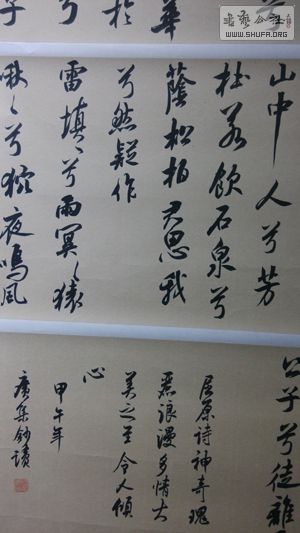 書藝公社
WWW.SHUFA.ORG
華
於
兮
山中人兮芳
杜若飲石泉兮
蔭松柏君思我
兮然疑作
雷填〻兮雨冥〻猿
啾〻兮狖夜鳴風
公子兮徒離
屈原诗神奇瑰
浪漫多情大
美之至令人傾
心
甲午年